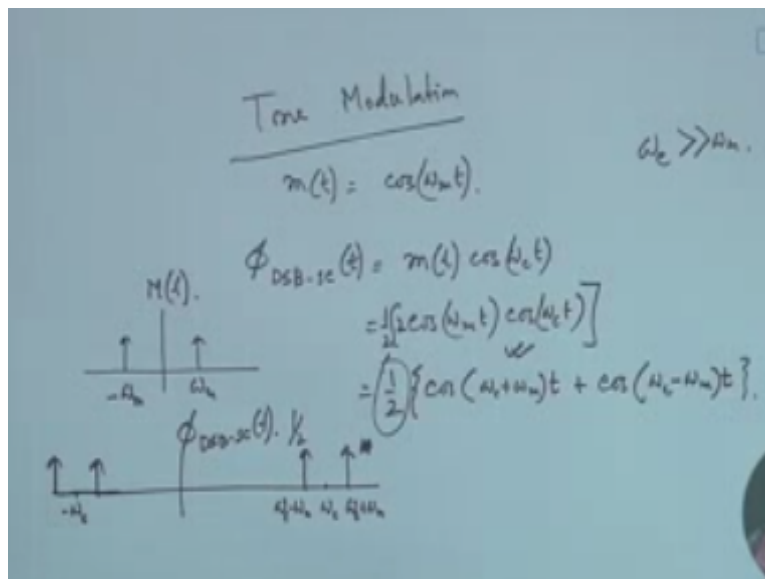 Tone Modulation
ω_c >> ω_m.
m(t) = cos(ω_m t).
φ_DSB-SC(t) = m(t) cos(ω_c t)
= 1/2[2cos(ω_m t) cos(ω_c t)]
= 1/2 {cos(ω_c+ω_m)t + cos(ω_c-ω_m)t}.
M(f).
-ω_m ω_m
φ_DSB-SC(f). 1/2
-ω_c ω_c-ω_m ω_c ω_c+ω_m